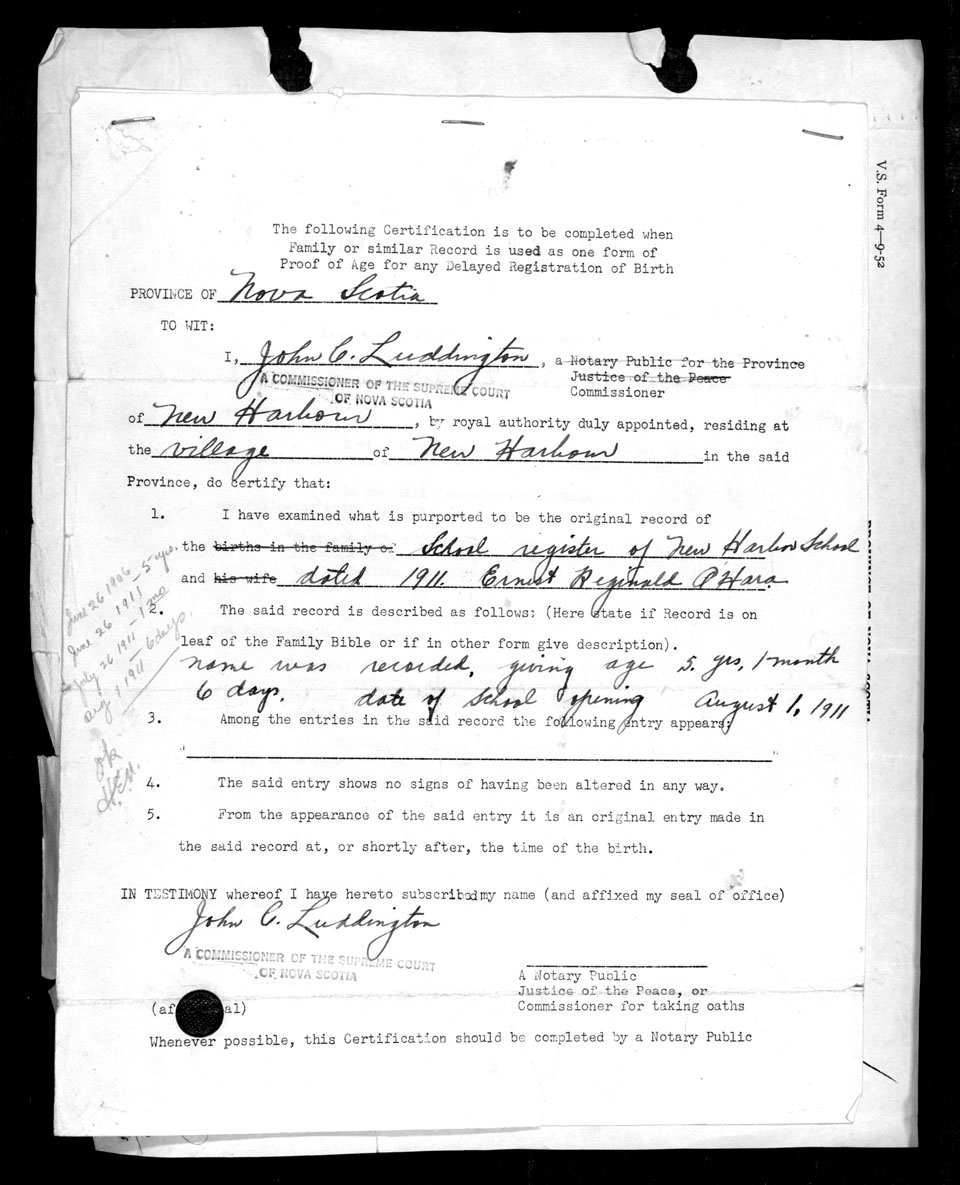 V.S. Form 4—9-52
The following Certification is to be completed when
Family or similar Record is used as one form of
Proof of Age for any Delayed Registration of Birth
PROVINCE OF Nova Scotia
TO WIT:
I, John C. Luddington, a Notary Public for the Province
Justice of the Peace
A COMMISSIONER OF THE SUPREME COURT
OF NOVA SCOTIA
Commissioner
of New Harbour, by royal authority duly appointed, residing at
the village of New Harbour in the said
Province, do certify that:
1. I have examined what is purported to be the original record of
the births in the family of School register of New Harbor School
and his wife dated 1911. Ernest Reginald O'Hara
2. The said record is described as follows: (Here state if Record is on
leaf of the Family Bible or if in other form give description).
name was recorded, giving age 5. yrs, 1 month
6 days. date of school opening August 1, 1911
3. Among the entries in the said record the following entry appears:
" "
4. The said entry shows no signs of having been altered in any way.
5. From the appearance of the said entry it is an original entry made in
the said record at, or shortly after, the time of the birth.
IN TESTIMONY whereof I have hereto subscribed my name (and affixed my seal of office)
John C. Luddington
A COMMISSIONER OF THE SUPREME COURT
OF NOVA SCOTIA
A Notary Public
Justice of the Peace, or
Commissioner for taking oaths
(af al)
Whenever possible, this Certification should be completed by a Notary Public
June 26 1906
June 26 1911 - 5 yrs.
July 26 1911 - 1 mo
Aug 1 1911 - 6 days.
ok